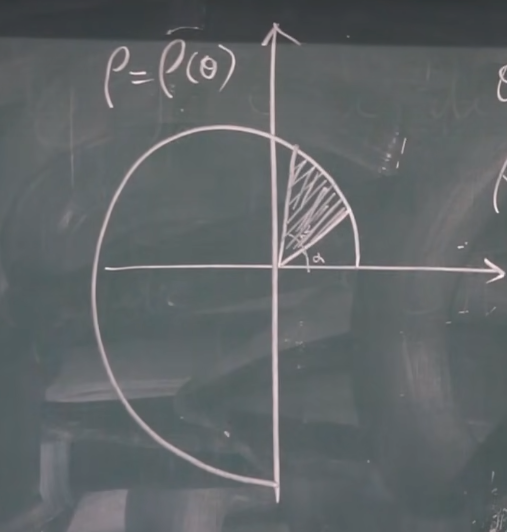 ρ=ρ(θ)
α